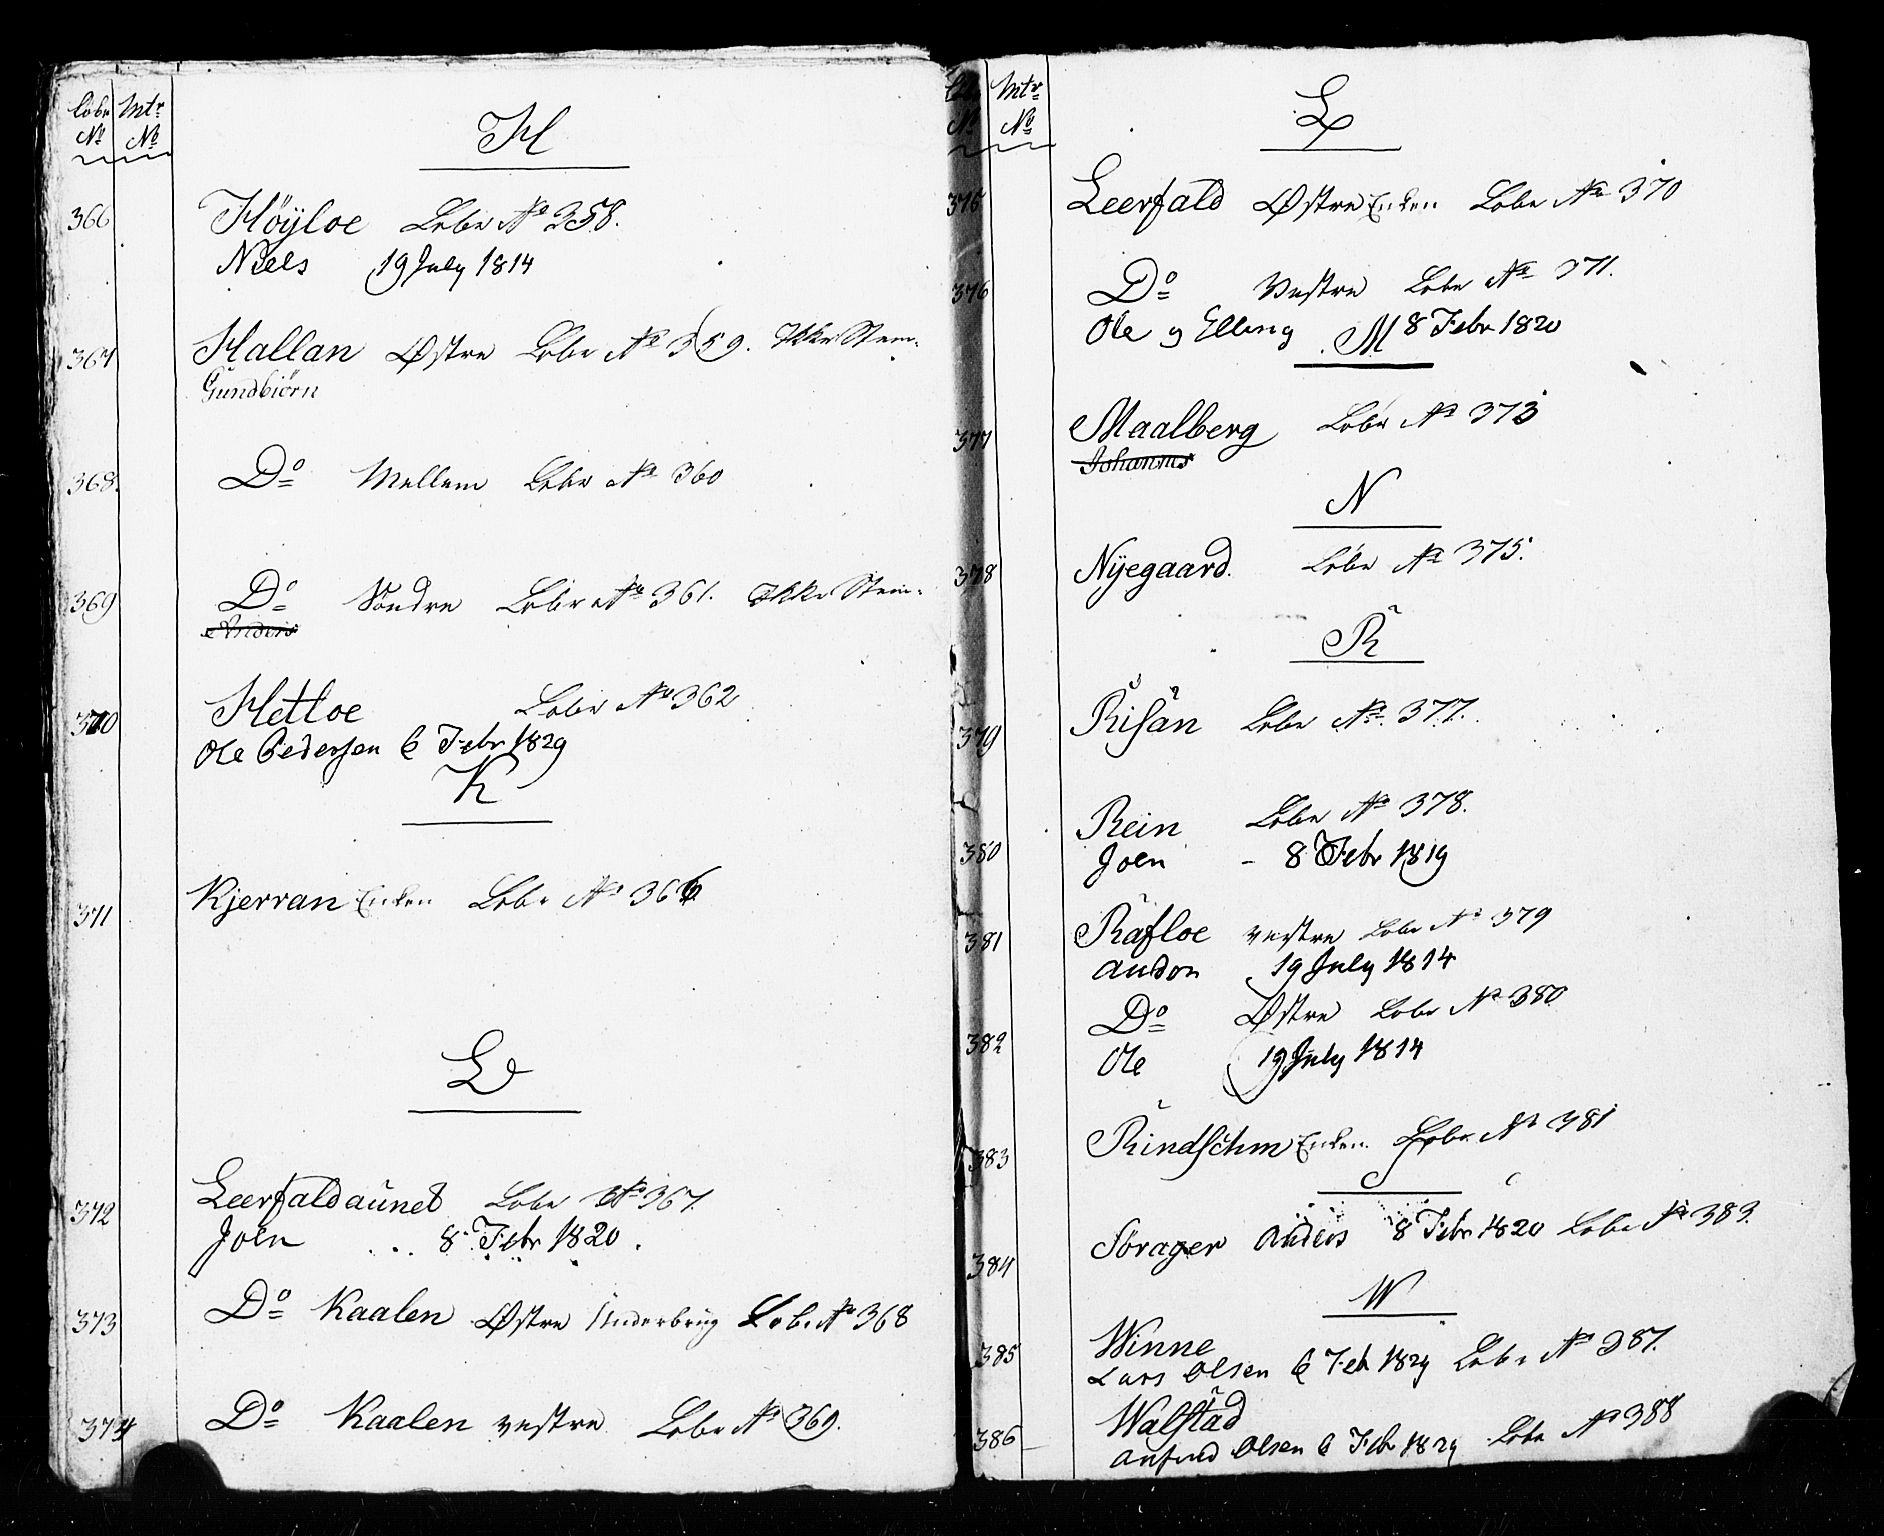 Löbe Mtr
No No
H
366 Höyloe Löbe No 358.
Niels 19 July 1814
367 Hallan Østre Löbe No 359. Ikke Stem-
Gundbiörn
368. Do Mellem Löbe No 360
369 Do Söndre Löbe No 361. Ikke Stem-
Anders
370 Hetloe Löbe No 362
Ole Pedersen 6 Febr 1829
K
371 Kjerran Enken Löbe No 366
L
372 Leerfaldaunet Löbe No 367.
Joen 8 Febr 1820.
373 Do Kaalen Østre Underbrug Löbe No 368
374 Do Kaalen vestre Löbe No 369.
Mtr
No No
L
375 Leerfald Østre Enken Löbe No 370
376 Do Vestre Löbe No 371.
Ole og Elling 8 Febr 1820
M
377 Maalberg Löbe No 373
Johannes
N
378 Nÿegaard. Löbe No 375.
R
379 Risan Löbe No 377.
380 Rein Löbe No 378.
Joen - 8 Febr 1819
381 Rafloe vestre Löbe No 379
Audon 19 July 1814
382 Do Østre Löbe No 380
Ole 19 July 1814
383 Rindsehm Enken. Löbe No 381
S
384 Sörager Anders 8 Febr 1820 Löbe No 383.
W
385 Winne
Lars Olsen 6 Feb 1829 Löbe No 387.
386 Walstad
Olsen 6 Feb 1829 Löbe No 388